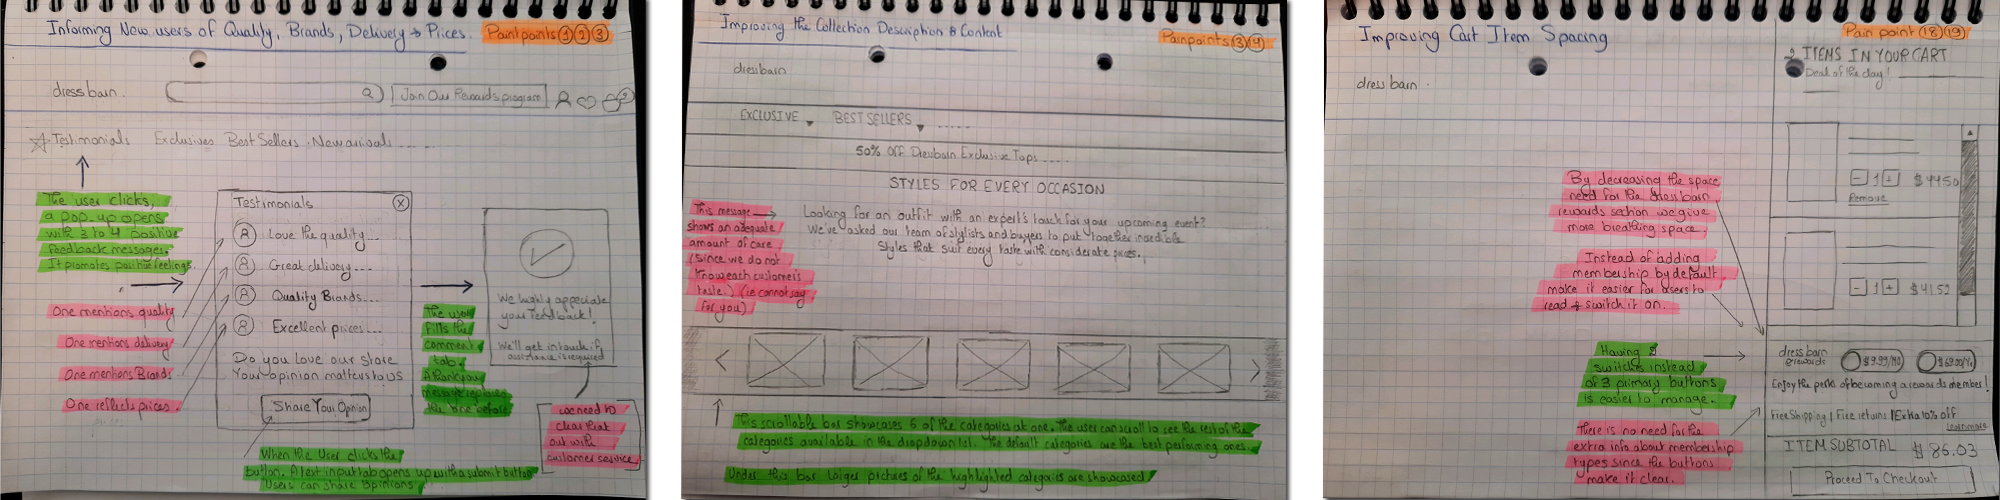 Informing New users of Quality, Brands, Delivery + Prices.
Painpoints 1 2 3
dressbarn.
Join Our Rewards program
2
Testimonials Exclusives Best Sellers New arrivals ....
The user clicks,
a pop-up opens
with 3 to 4 positive
feedback messages.
It promotes positive feelings.
One mentions quality
One mentions delivery
One mentions Brands
One reflects prices.
Testimonials
X
Love the quality...
Great delivery...
Quality Brands...
Excellent prices...
Do you love our store
Your opinion matters to US
Share Your Opinion
When the User clicks the
button. A text input tab opens up with a submit button
Users can share opinions
The user
fills the
comment
tab.
A thank you
message replaces
the one before
We highly appreciate
your feedback!
We'll get in touch if
assistance is required
we need to
clear that
out with
customer service
Improving the Collection Description & Content
Painpoints 3 4
dressbarn
EXCLUSIVE BEST SELLERS .....
50% Off Dressbarn Exclusive Tops ....
STYLES FOR EVERY OCCASION
This message
shows an adequate
amount of care
(Since we do not
Know each customers
taste.) (ie cannot say
for you)
Looking for an outfit with an expert's touch for your upcoming event?
We've asked our team of stylists and buyers to put together incredible
Styles that suit every taste with considerate prices.
This scrollable bar showcases 5 of the categories at one. The user can scroll to see the rest of the
categories available in the dropdown list. The default categories are the best performing ones.
Under this bar larger pictures of the highlighted categories are showcased
Improving Cart Item Spacing
Pain point (18)(19)
dressbarn.
2 ITEMS IN YOUR CART
Deal of the day!
- 1 + $ 44.50
Remove
- 1 + $ 41.52
By decreasing the space
need for the dressbarn
rewards section we give
more breathing space.
Instead of adding
membership by default,
make it easier for users to
read + switch it on.
Having 2
switches instead
of 3 primary buttons
is easier to manage.
There is no need for the
extra info about membership
types since the buttons
make it clear.
dressbarn
rewards
$9.99/MO
$69.00/Yr
Enjoy the perks of becoming a rewards member!
Free Shipping / Free returns / Extra 10% off
Learn more
ITEM SUBTOTAL $ 86.03
Proceed To Checkout